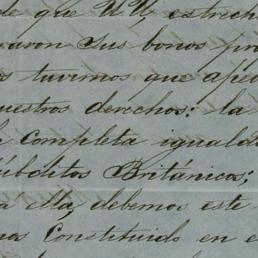 de que UU, estrech
naron sus bonos pro
s tuvimos que ape
uestros derechos: la
completa iguald
úbditos Británicos;
a ella, debemos este
nos Constituido en e